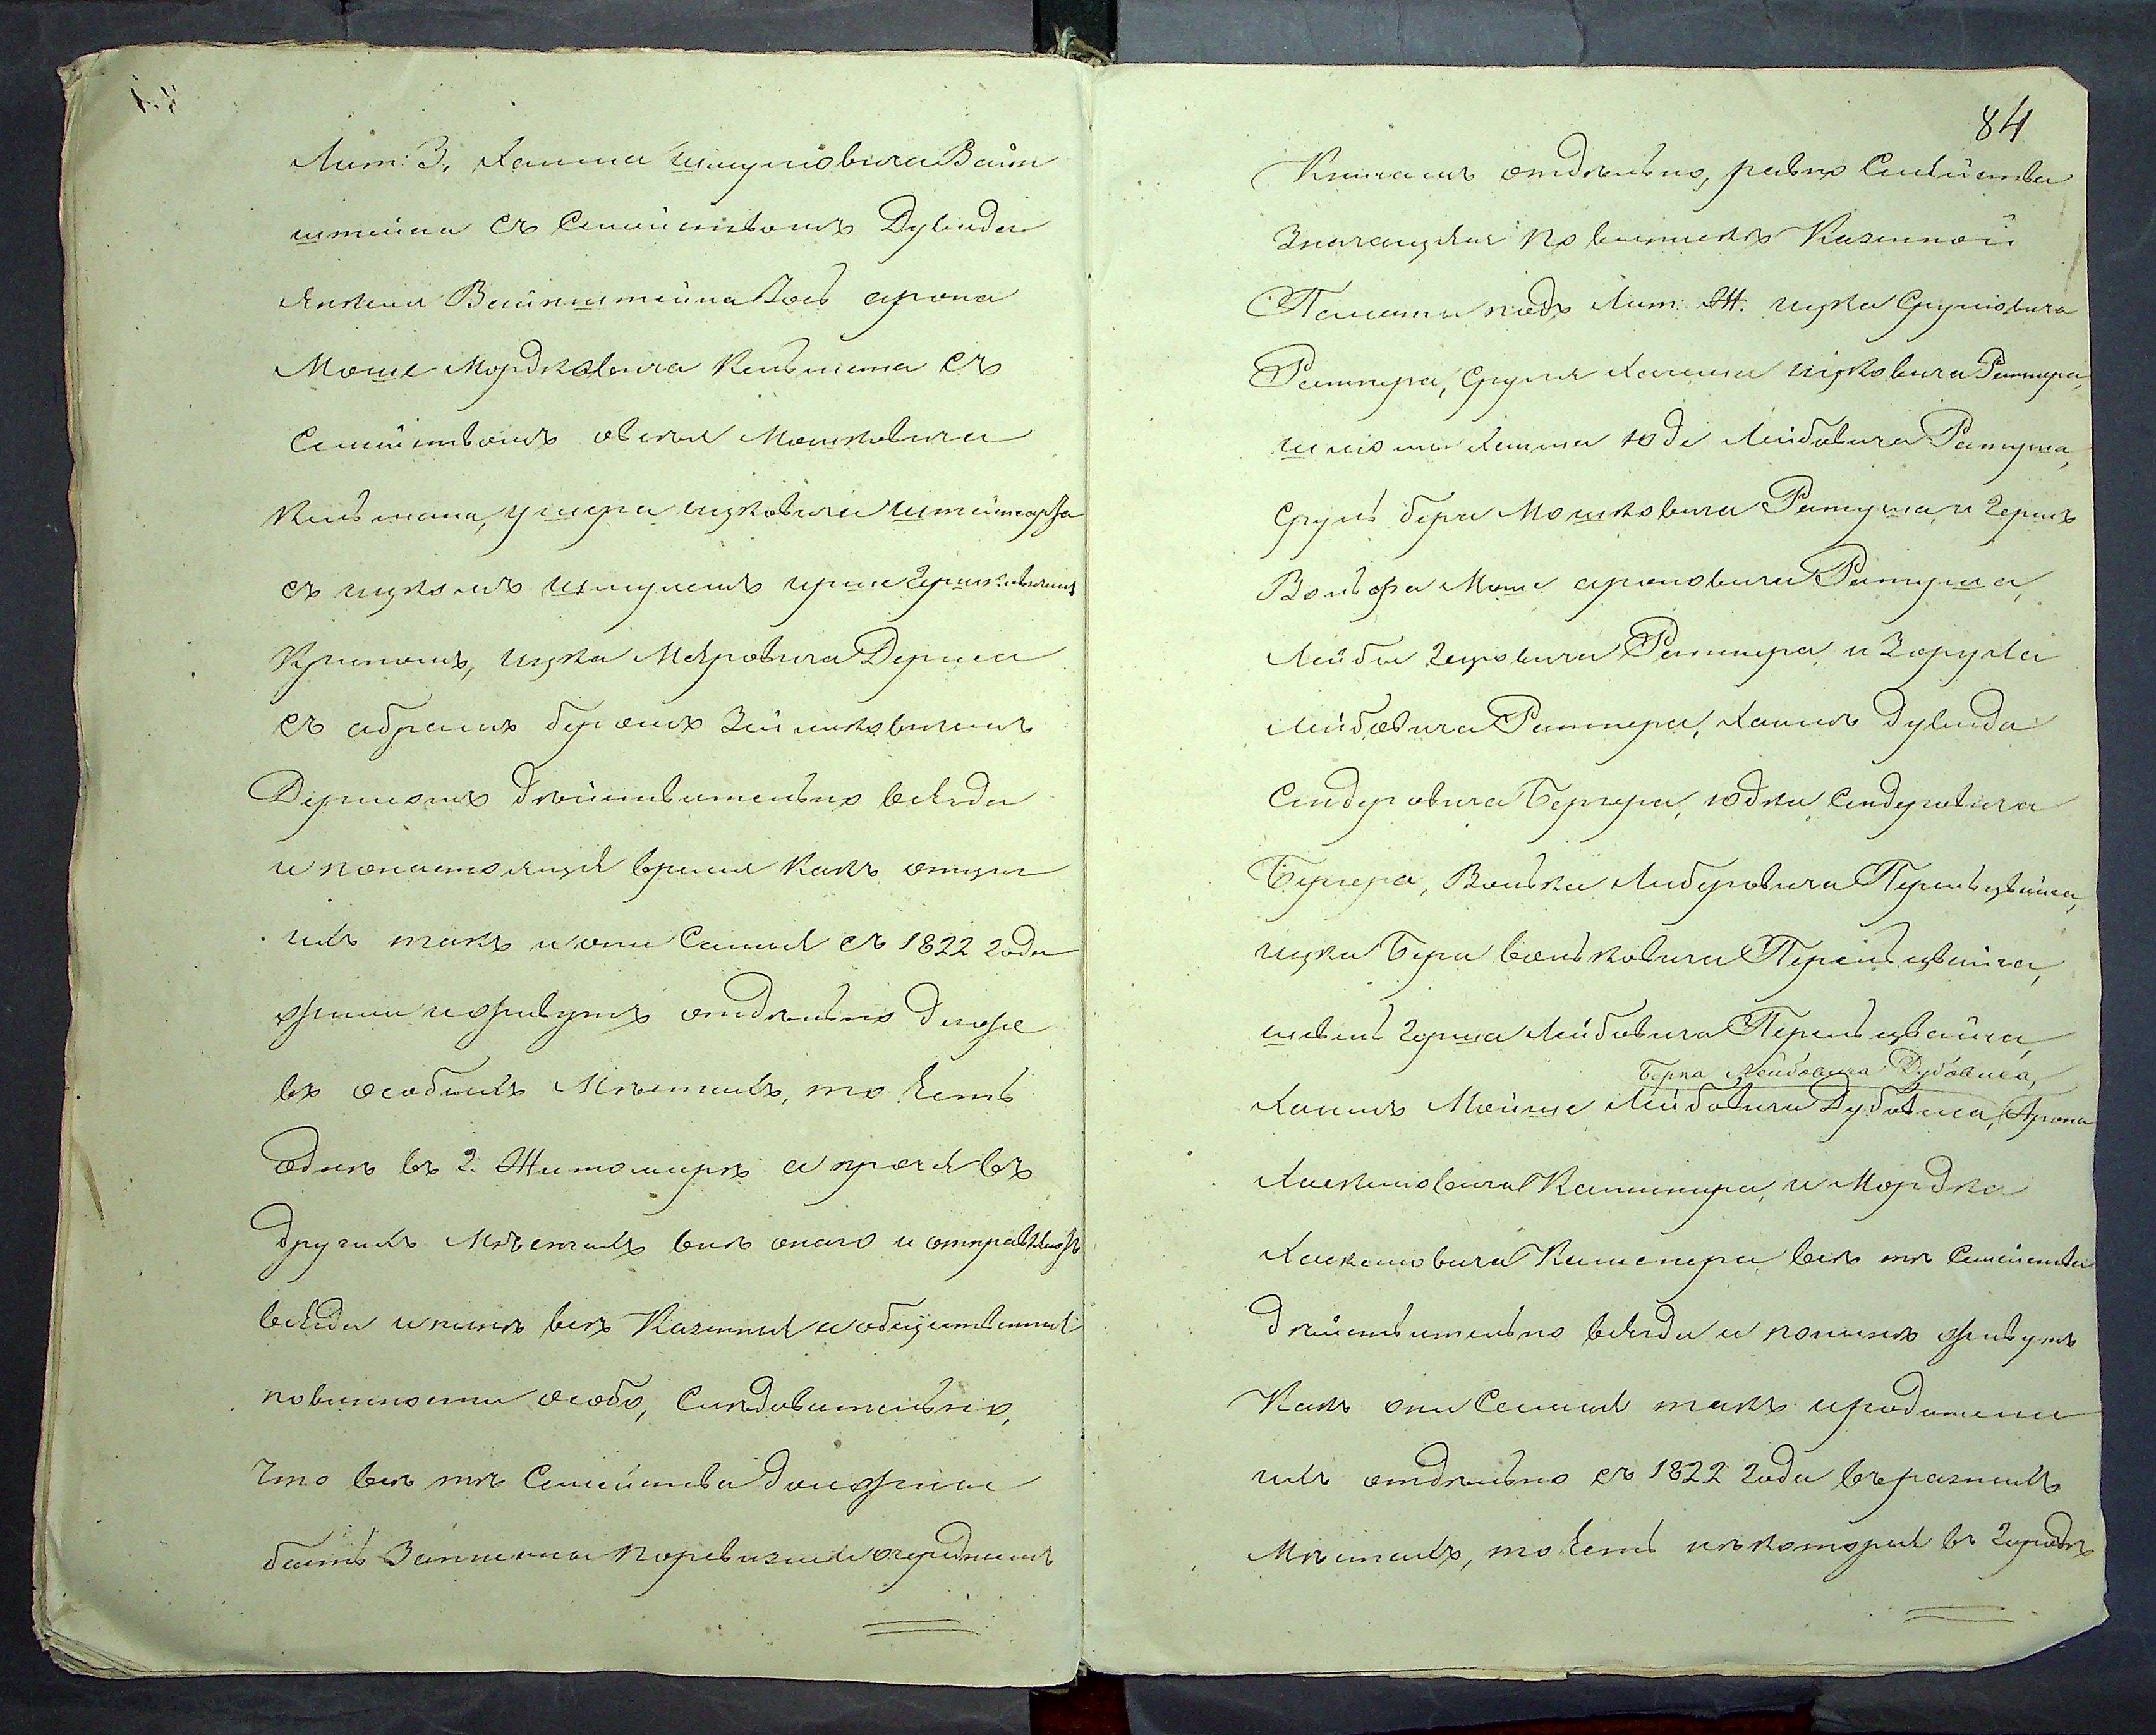 Лит: З. Хаима Шмулiовича Вайн
штейна съ Семействомъ Дувида
Янкеля Вайнштейна Іось арона
Моше Мордковича Кельмана съ
Семействомъ овсея Мошковича
Кельмана, ушера ицковича штеймарка
съ ицкомъ шмулемъ ирше Гершковичемъ
Кримомъ, ицка Меэровича Держа
съ абрамъ беромъ Зеймковичемъ
действительно всегда
и понастоящее время какъ отцы
ихъ такъ и они Самые съ 1822 года
жили и живутъ отдѣльно даже
въ особыхъ Мѣстахъ, то есть
одни въ г. Житомирѣ а прочие въ
другихъ Мѣстахъ внѣ онаго и отправляютъ
всегда и нинѣ всѣ Казенныя и общественныя
повинности особо, Слѣдовательно,
что всѣ тѣ Семейства должны
быть Записаны поревизскимъ очереднымъ
84
Книгамъ отдѣльно, равно Семейства
Значащіяся по выпискѣ Казенной
Палаты подъ Лит: Ж. ицка Срулiовича
Ратнера, Сруля Хаима ицковича Ратнера,
шліомы Хаима юде Лейбовича Ратуша,
Сруль бера Мошковича Ратуша, и Гершъ
Вольфа Моше ароновича Ратуша,
Лейбы Ратнера, и Зоруха
Лейбовича Ратнера, Хаимъ Дувида
Сендеровича Бергера, юдка Сендеровича
Бергера, Волька Либеровича Перельцвайга,
ицка Бера вольковича Перельцвайга,
шевель герша Лейбовича Перельцвайга,
Берка Лейбовича Дубовиса,
Хаимъ Мойше Лейбовича Дубовиса, Арона
Хаскелiовича Камінера, и Мордка
Хаскелiовича Каменера всѣ тѣ Семейства
дѣйствительно всегда и понинѣ живутъ
Какъ они Самые такъ и родители
ихъ отдѣльно съ 1822 года въ разныхъ
Мѣстахъ, то есть некоторые въ Городѣ